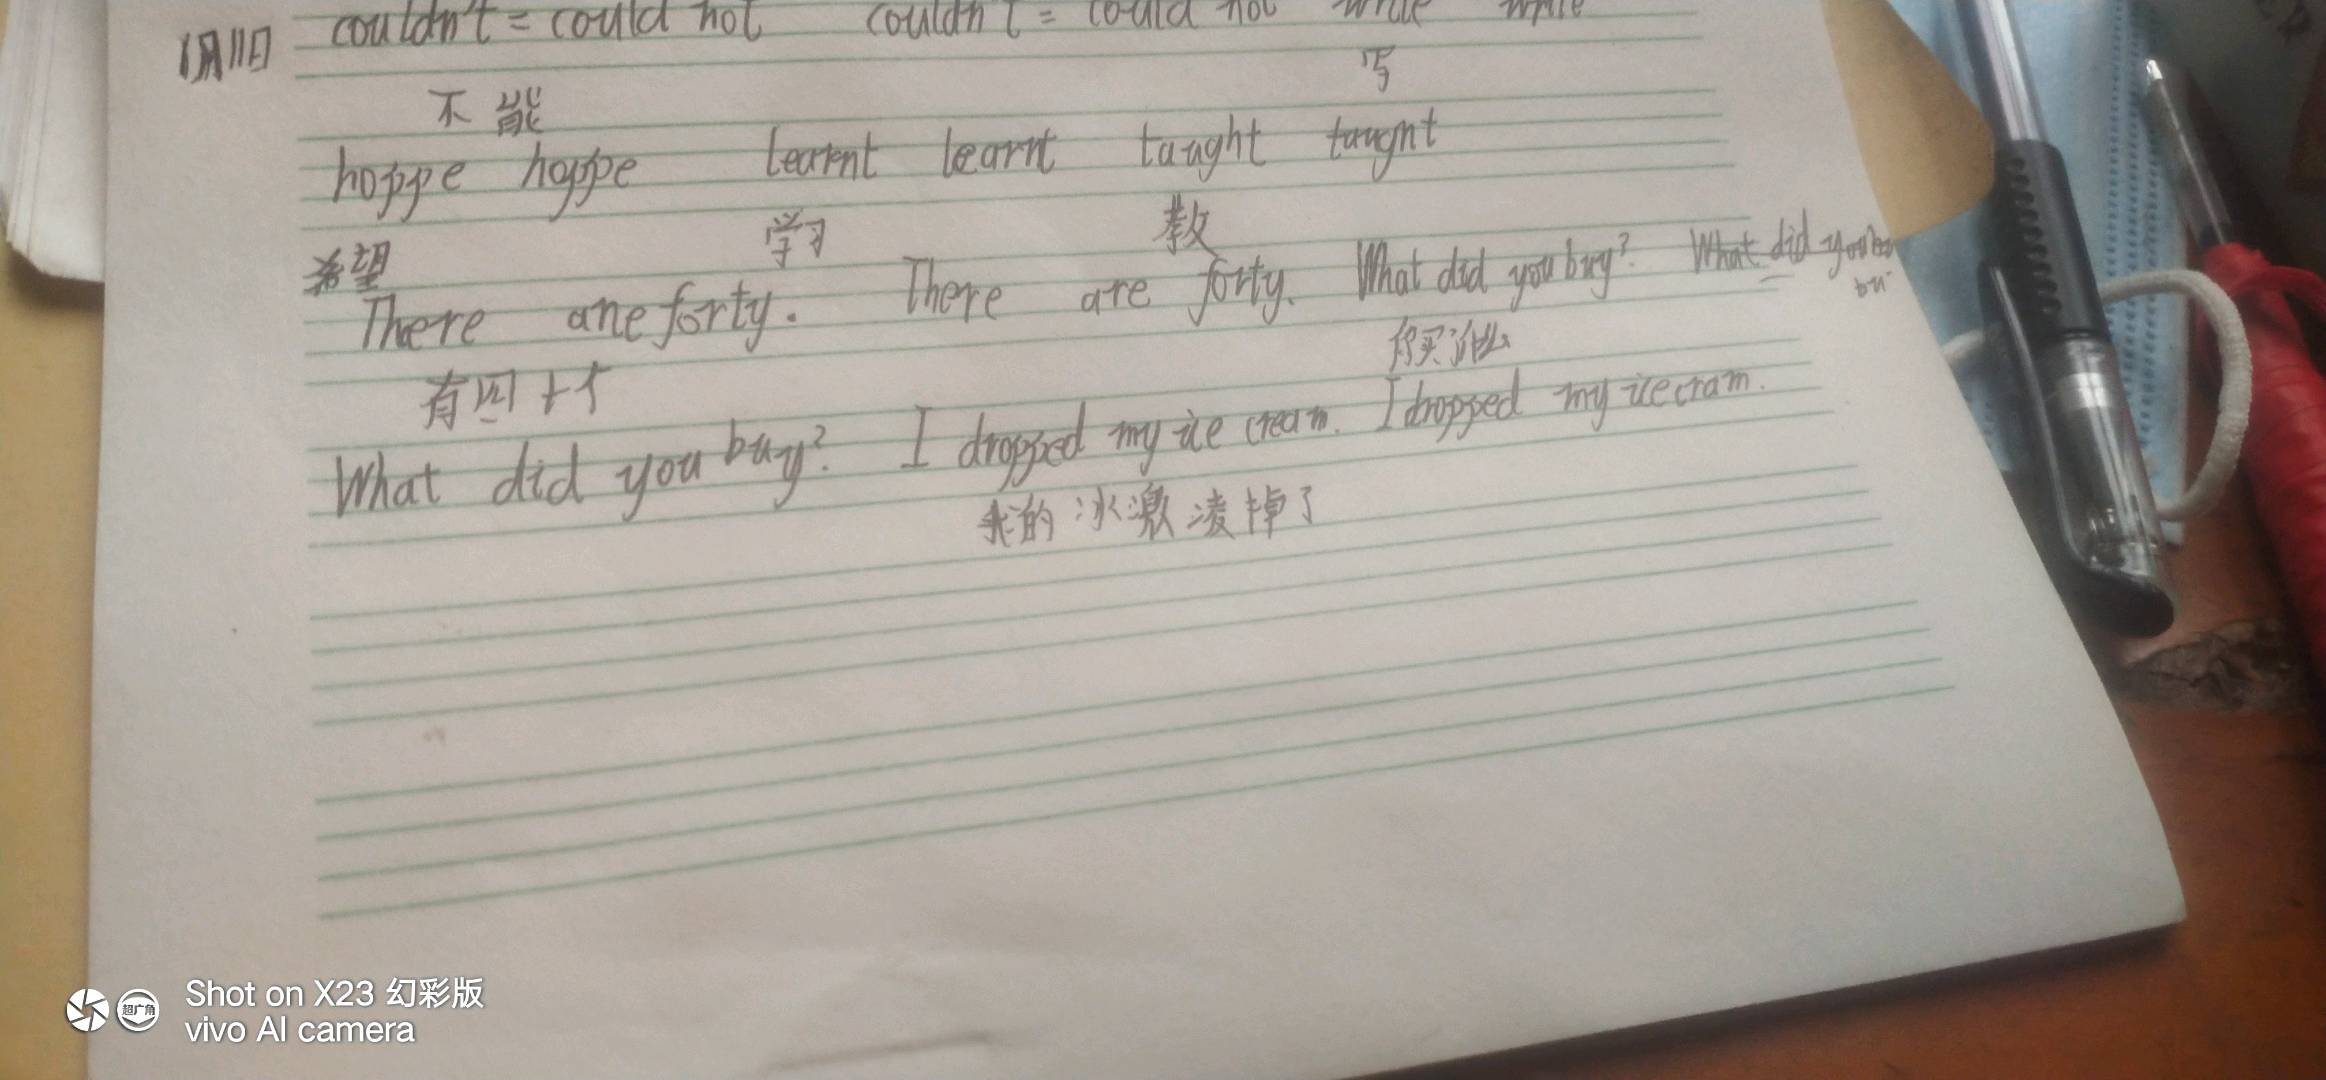 1月11日 couldn't = could not couldn't = could not write write
不能 写
hoppe hoppe learnt learnt taught taught
希望 学习 教
There are forty. There are forty. What did you buy? What did you
有四十个 你买什么
What did you buy? I dropped my ice cream. I dropped my ice cram.
我的冰激凌掉了
Shot on X23 幻彩版
超广角
vivo AI camera